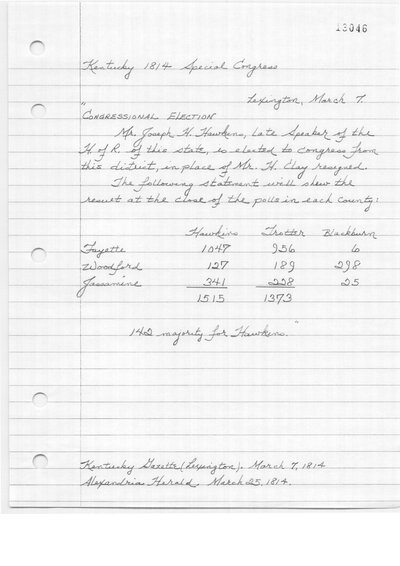 13046
Kentucky 1814 Special Congress
Lexington, March 7.
"
CONGRESSIONAL ELECTION
Mr. Joseph H. Hawkins, late Speaker of the
H. of R. of this state, is elected to Congress from
this district, in place of Mr. H. Clay resigned.
The following statement will shew the
result at the close of the polls in each County:
Hawkins Trotter Blackburn
Fayette 1047 956 6
Woodford 127 189 298
Jassamine 341 228 25
1515 1373
142 majority for Hawkins."
Kentucky Gazette (Lexington). March 7, 1814
Alexandria Herald. March 25, 1814.